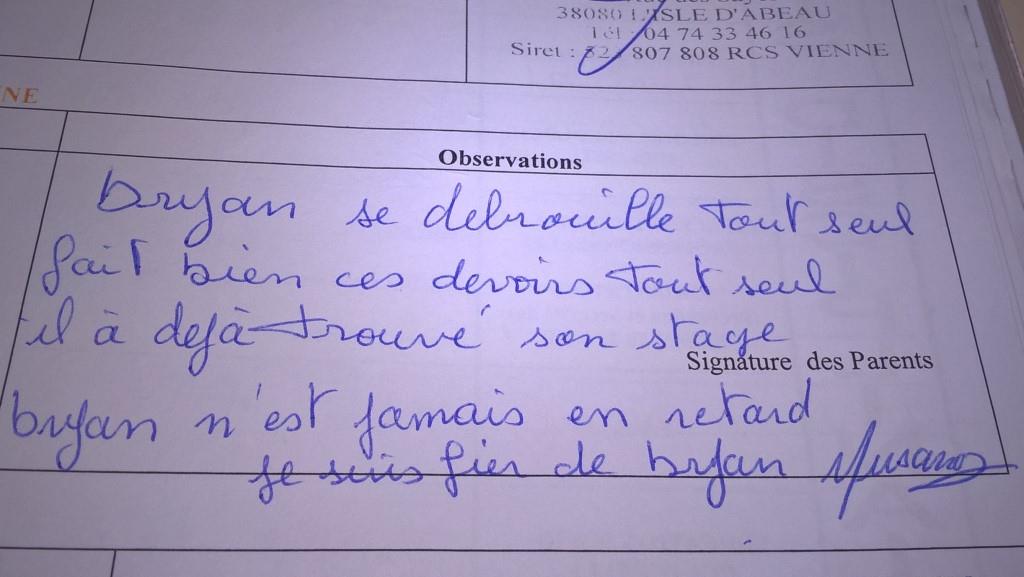 38080 L'ISLE D'ABEAU
Tél : 04 74 33 46 16
Siret : 807 808 RCS VIENNE
NE
Observations
bryan se debrouille tout seul
fait bien ces devoirs tout seul
il à dejà trouvé son stage
Signature des Parents
bryan n'est jamais en retard
je suis fier de bryan